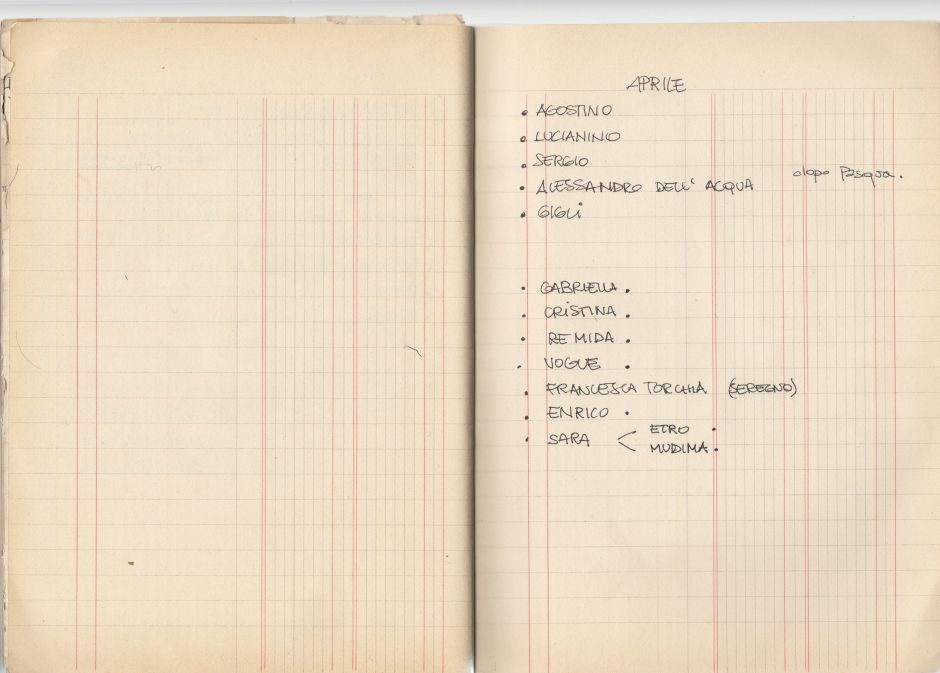 APRILE
• AGOSTINO
• LUCIANINO
• SERGIO
• ALESSANDRO DELL' ACQUA dopo Pasqua.
• GIGLI
• GABRIELLA .
• CRISTINA .
• RE MIDA .
• VOGUE .
• FRANCESCA TORCHIA (SEREGNO)
• ENRICO .
• SARA < ETRO .
MUDIMA .